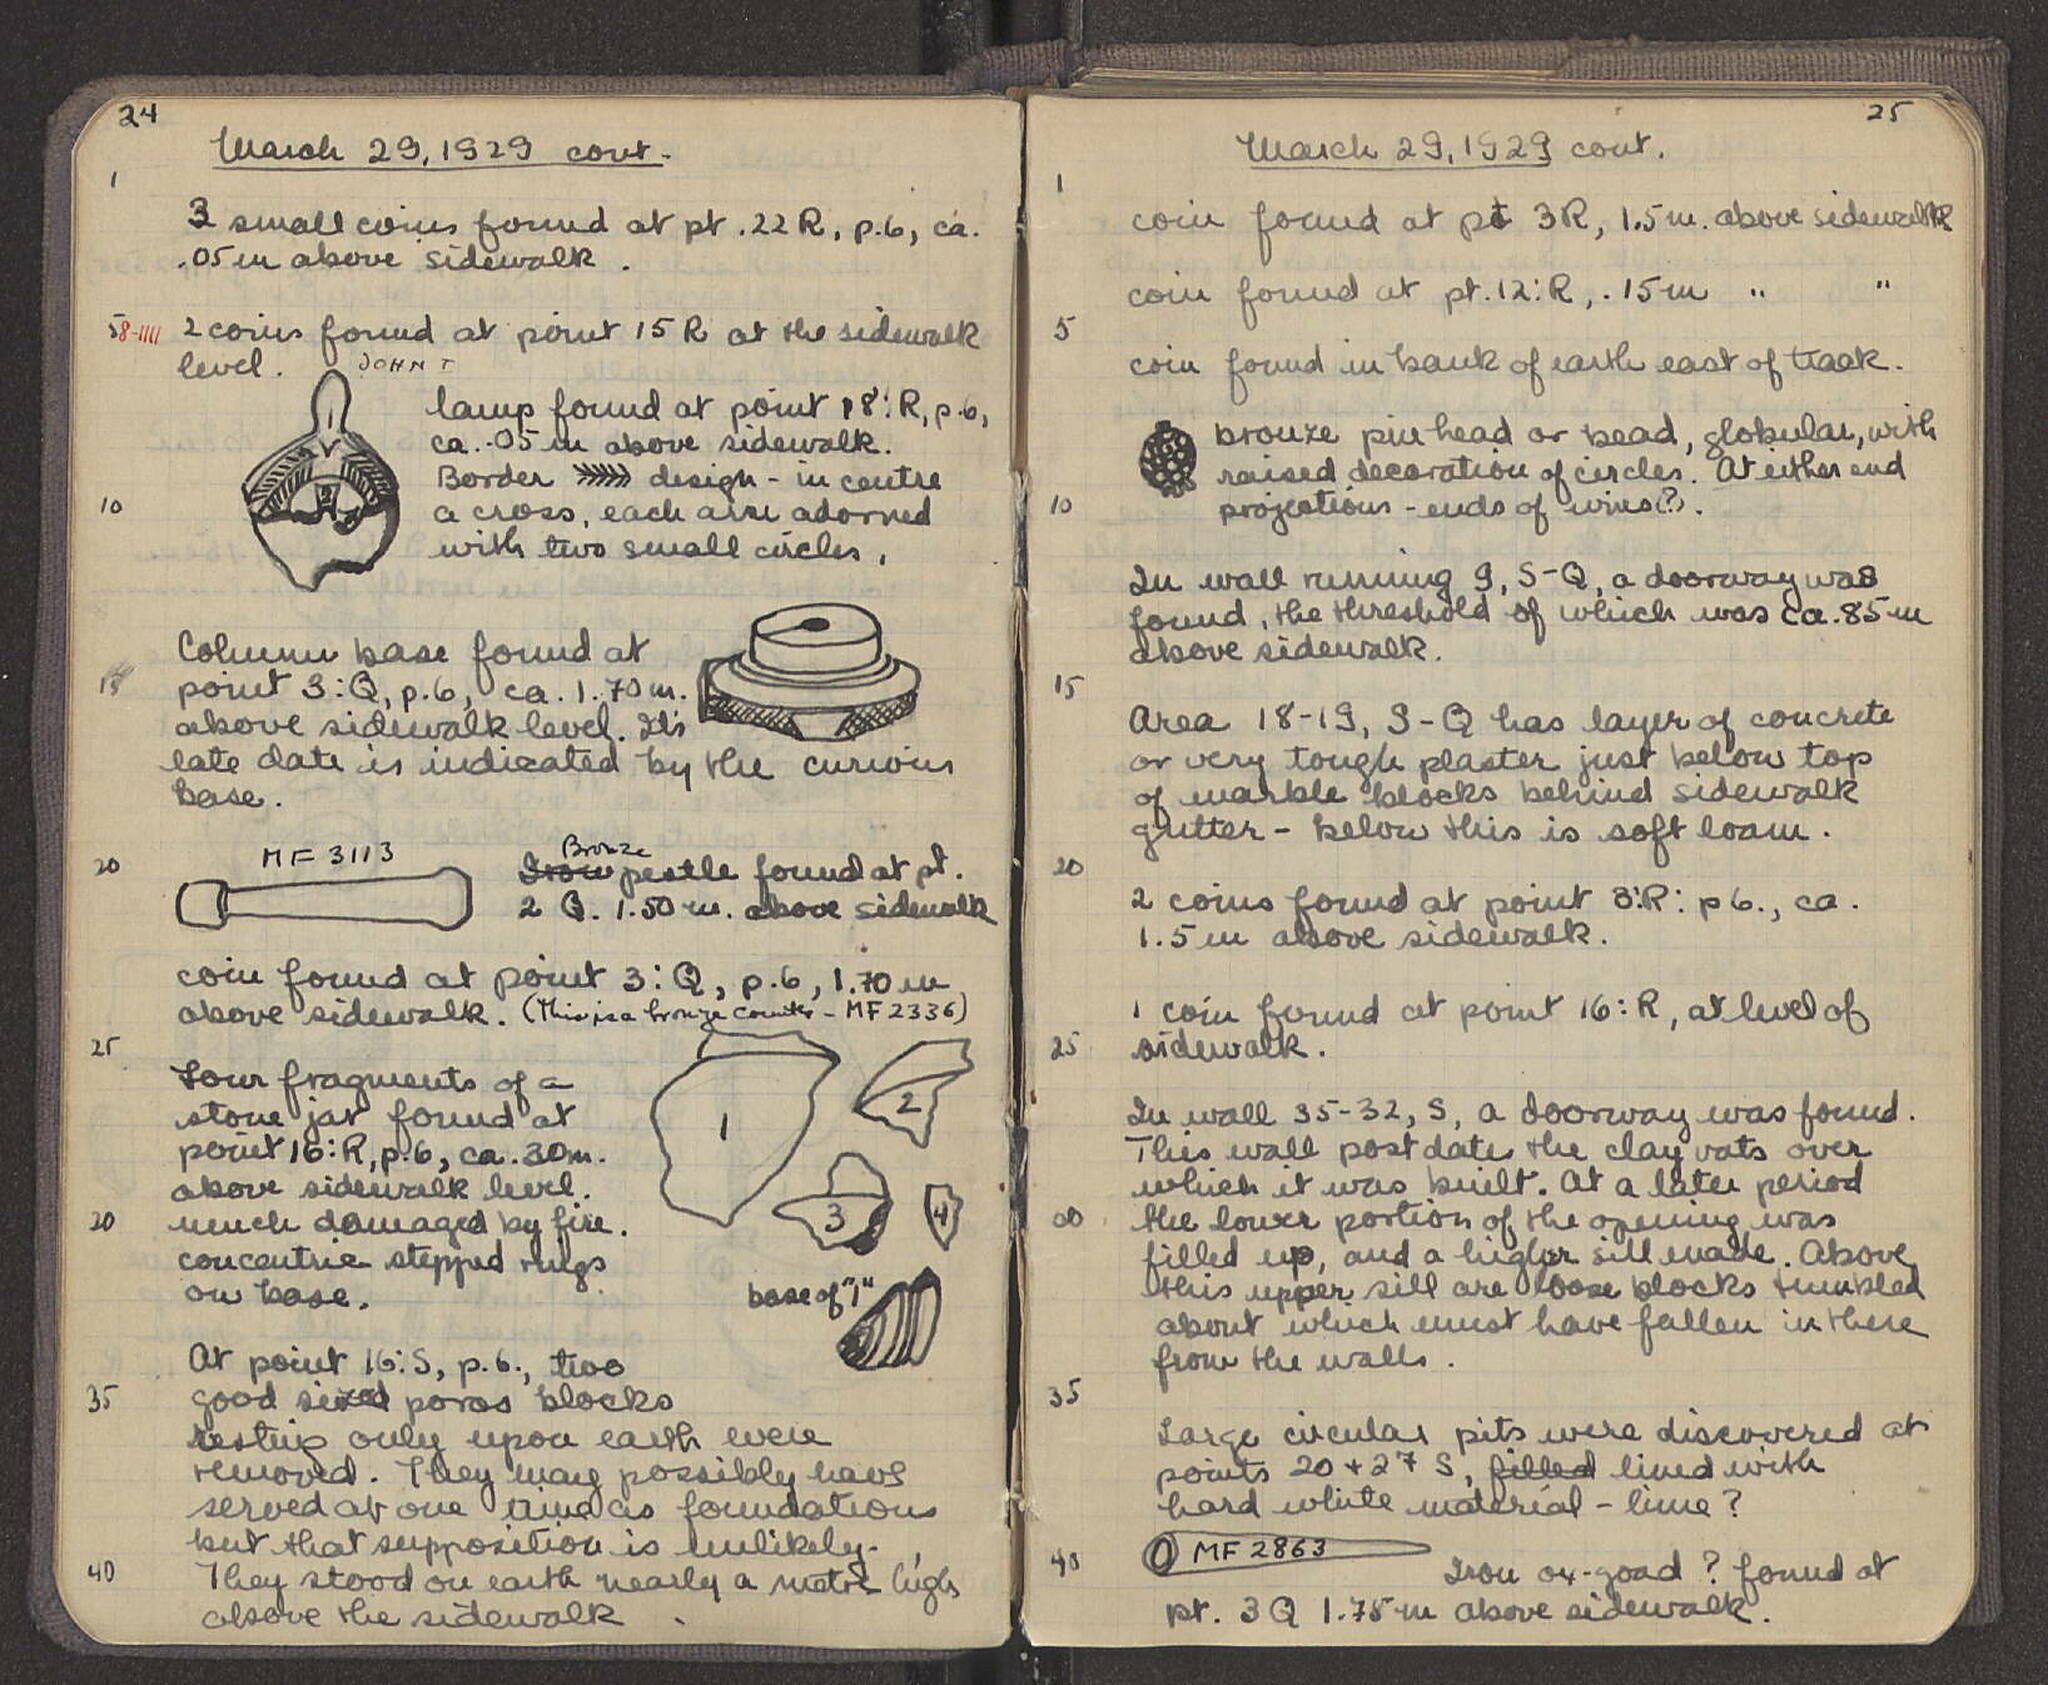 24
March 29, 1929 cont.
1
3 small coins found at pt. 22 R, p.6, ca.
.05 m above sidewalk.
2 coins found at point 15 R at the sidewalk
level. JOHN I
lamp found at point 18:R, p.6,
ca. .05 m above sidewalk.
Border >>>>> design - in centre
10
a cross, each arm adorned
with two small circles.
Column base found at
15
point 3:Q, p.6, ca. 1.70 m.
above sidewalk level. Its
late date is indicated by the curious
base.
20
MF 3113
Bronze
Iron pestle found at pt.
2 Q. 1.50 m. above sidewalk
coin found at point 3:Q, p.6, 1.70 m
above sidewalk. (This is a bronze counter - MF 2336)
25
Four fragments of a
stone jar found at
point 16:R, p.6, ca .30 m.
above sidewalk level.
30
much damaged by fire.
concentric stepped rings
on base.
1
2
3
4
base of "1"
At point 16:S, p.6., two
35
good sized poros blocks
resting only upon earth were
removed. They may possibly have
served at one time as foundations
but that supposition is unlikely.
40
They stood on earth nearly a metre high
above the sidewalk.
25
March 29, 1929 cont.
1
coin found at pt 3R, 1.5 m. above sidewalk
coin found at pt. 12:R, .15 m " "
5
coin found in bank of earth east of track.
bronze pin head or bead, globular, with
raised decoration of circles. At either end
10
projections - ends of wires(?).
In wall running 9, S-Q, a doorway was
found, the threshold of which was ca .85 m
above sidewalk.
15
Area 18-19, S-Q has layer of concrete
or very tough plaster just below top
of marble blocks behind sidewalk
gutter - below this is soft loam.
20
2 coins found at point 3:R: p 6., ca.
1.5 m above sidewalk.
1 coin found at point 16:R, at level of
25
sidewalk.
In wall 35-32, S, a doorway was found.
This wall postdates the clay vats over
which it was built. At a later period
30
the lower portion of the opening was
filled up, and a higher sill made. Above
this upper sill are loose blocks tumbled
about which must have fallen in there
from the walls.
35
Large circular pits were discovered at
points 20 + 27 S, filled lined with
hard white material - lime?
40
MF 2863
Iron ox-goad? found at
pt. 3Q 1.75 m above sidewalk.